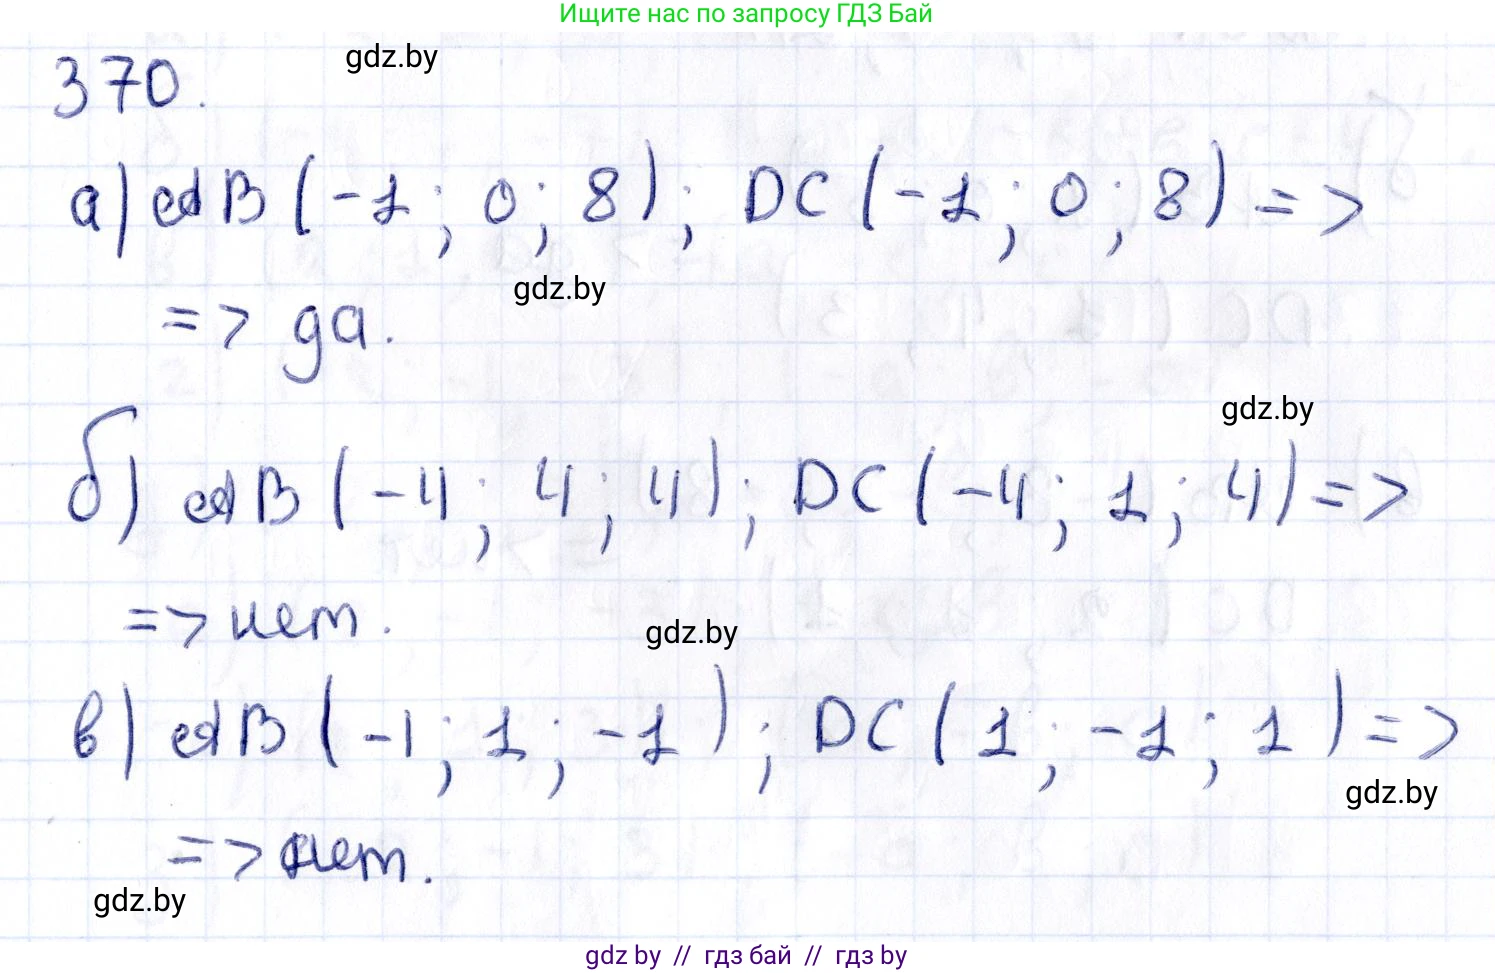 Ищите нас по запросу ГДЗ Бай
gdz.by
370.
а) AB (-1; 0; 8); DC (-1; 0; 8) =>
gdz.by
=> да.
gdz.by
б) AB (-4; 4; 4); DC (-4; 1; 4) =>
=> нет.
gdz.by
в) AB (-1; 1; -1); DC (1; -1; 1) =>
gdz.by
=> нет.
gdz.by
gdz by // гдз бай // гдз by